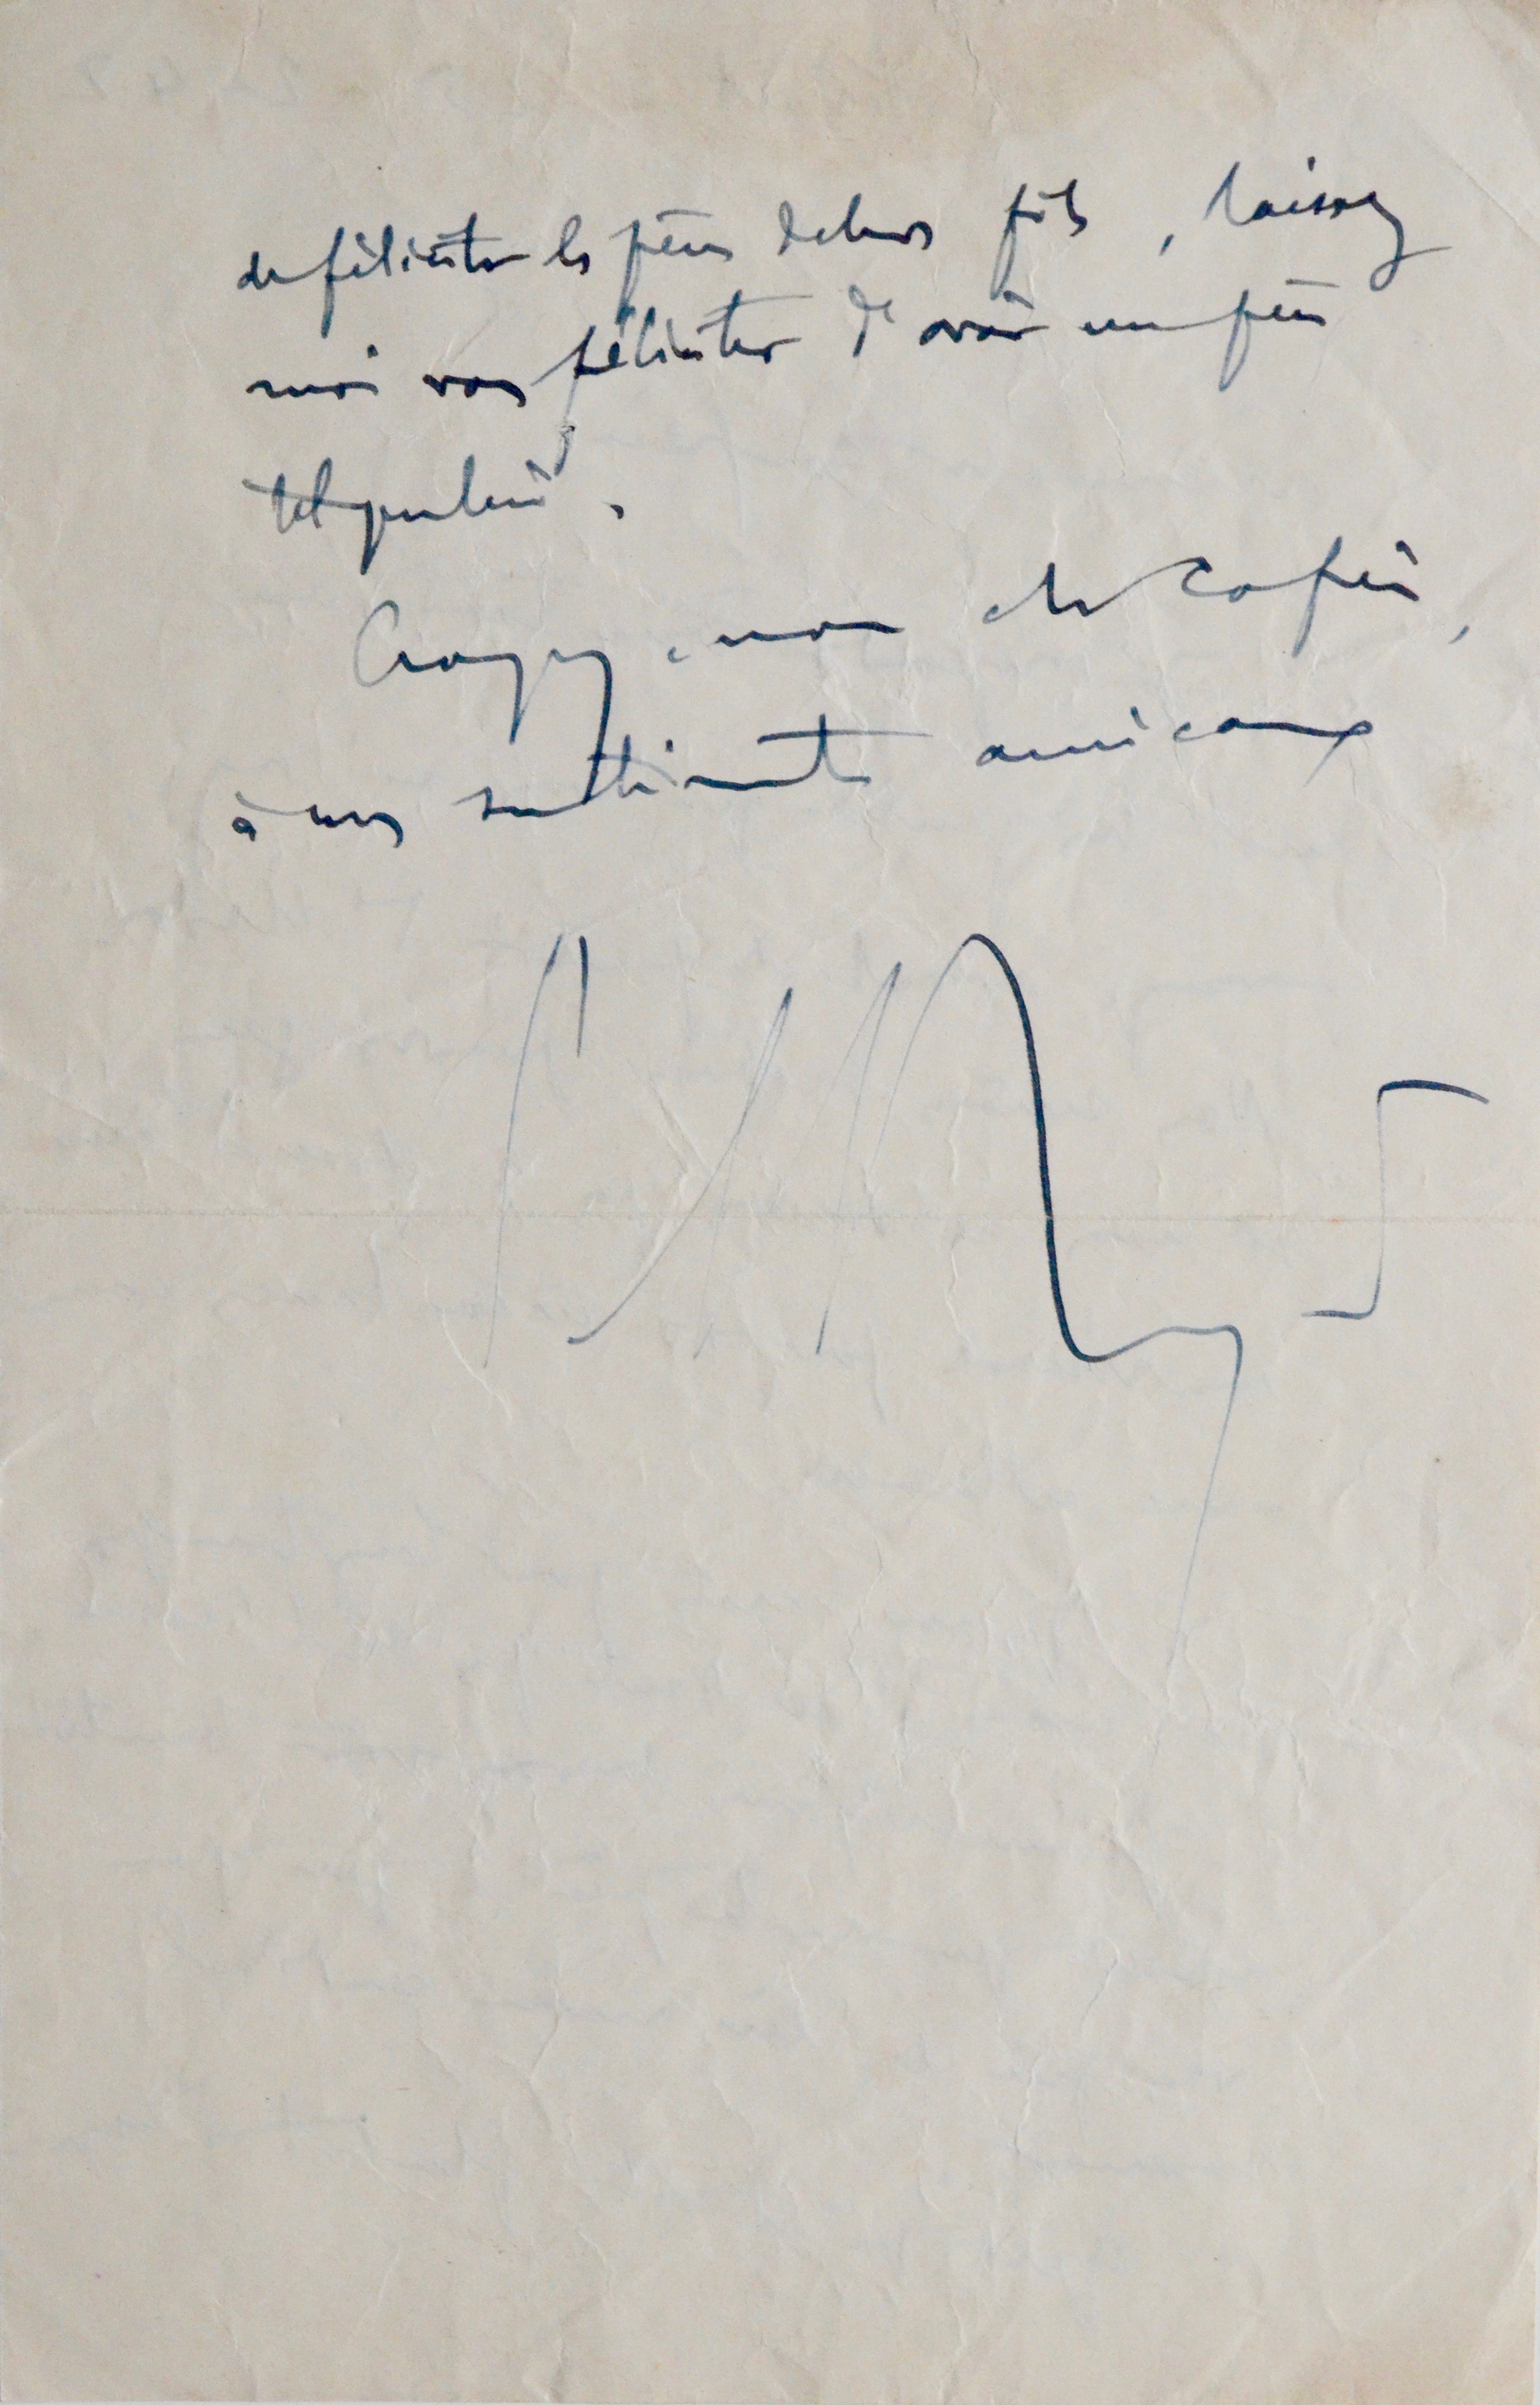 de féliciter les pères de leurs fils, laissez
moi vous féliciter d'avoir un père
tel que lui.
Croyez, mon cher
à mes sentiments amicaux